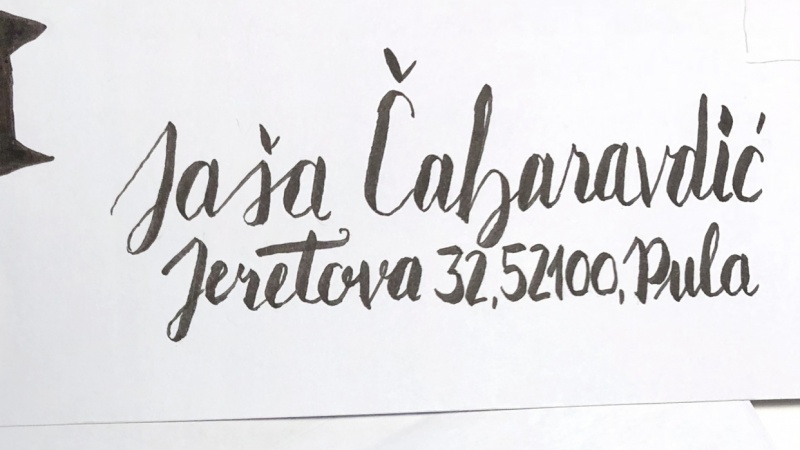 Jaša Čaharavdić
Jeretova 32, 52100, Pula